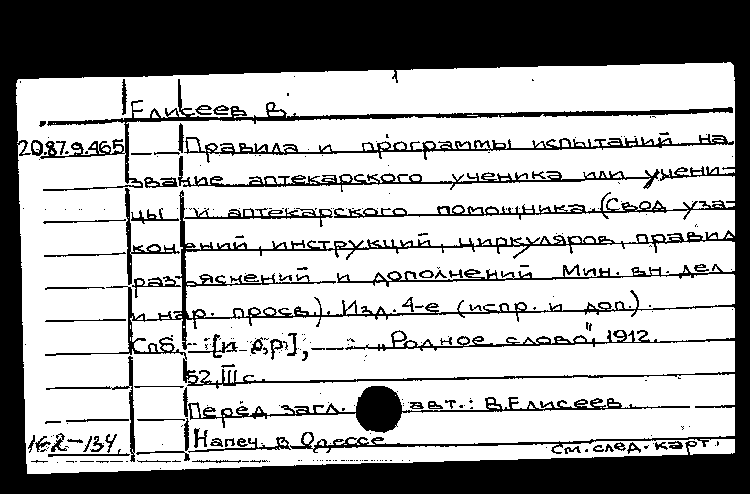 1
Елисеев, В.
20.87.9.465 Правила и программы испытаний на
звание аптекарского ученика или учени=
цы и аптекарского помощника. (Свод уза-
конений, инструкций, циркуляров, правил
разъяснений и дополнений Мин. вн. дел
и нар. просв.). Изд. 4-е (испр. и доп.).
Спб. - [и др], - "Родное слово", 1912.
52, III с.
Перед загл. авт.: В. Елисеев.
162-134. Напеч. в Одессе.
См. след. карт.